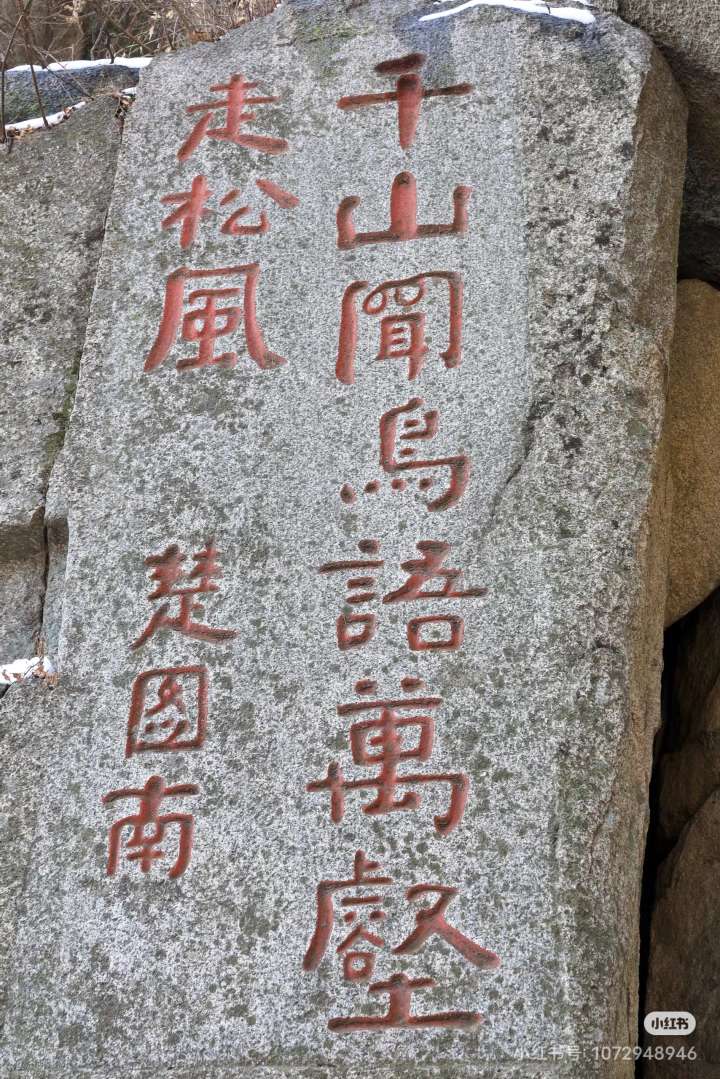 千山聞鳥語萬壑
走松風
楚圖南
小红书
小红书号：1072948946